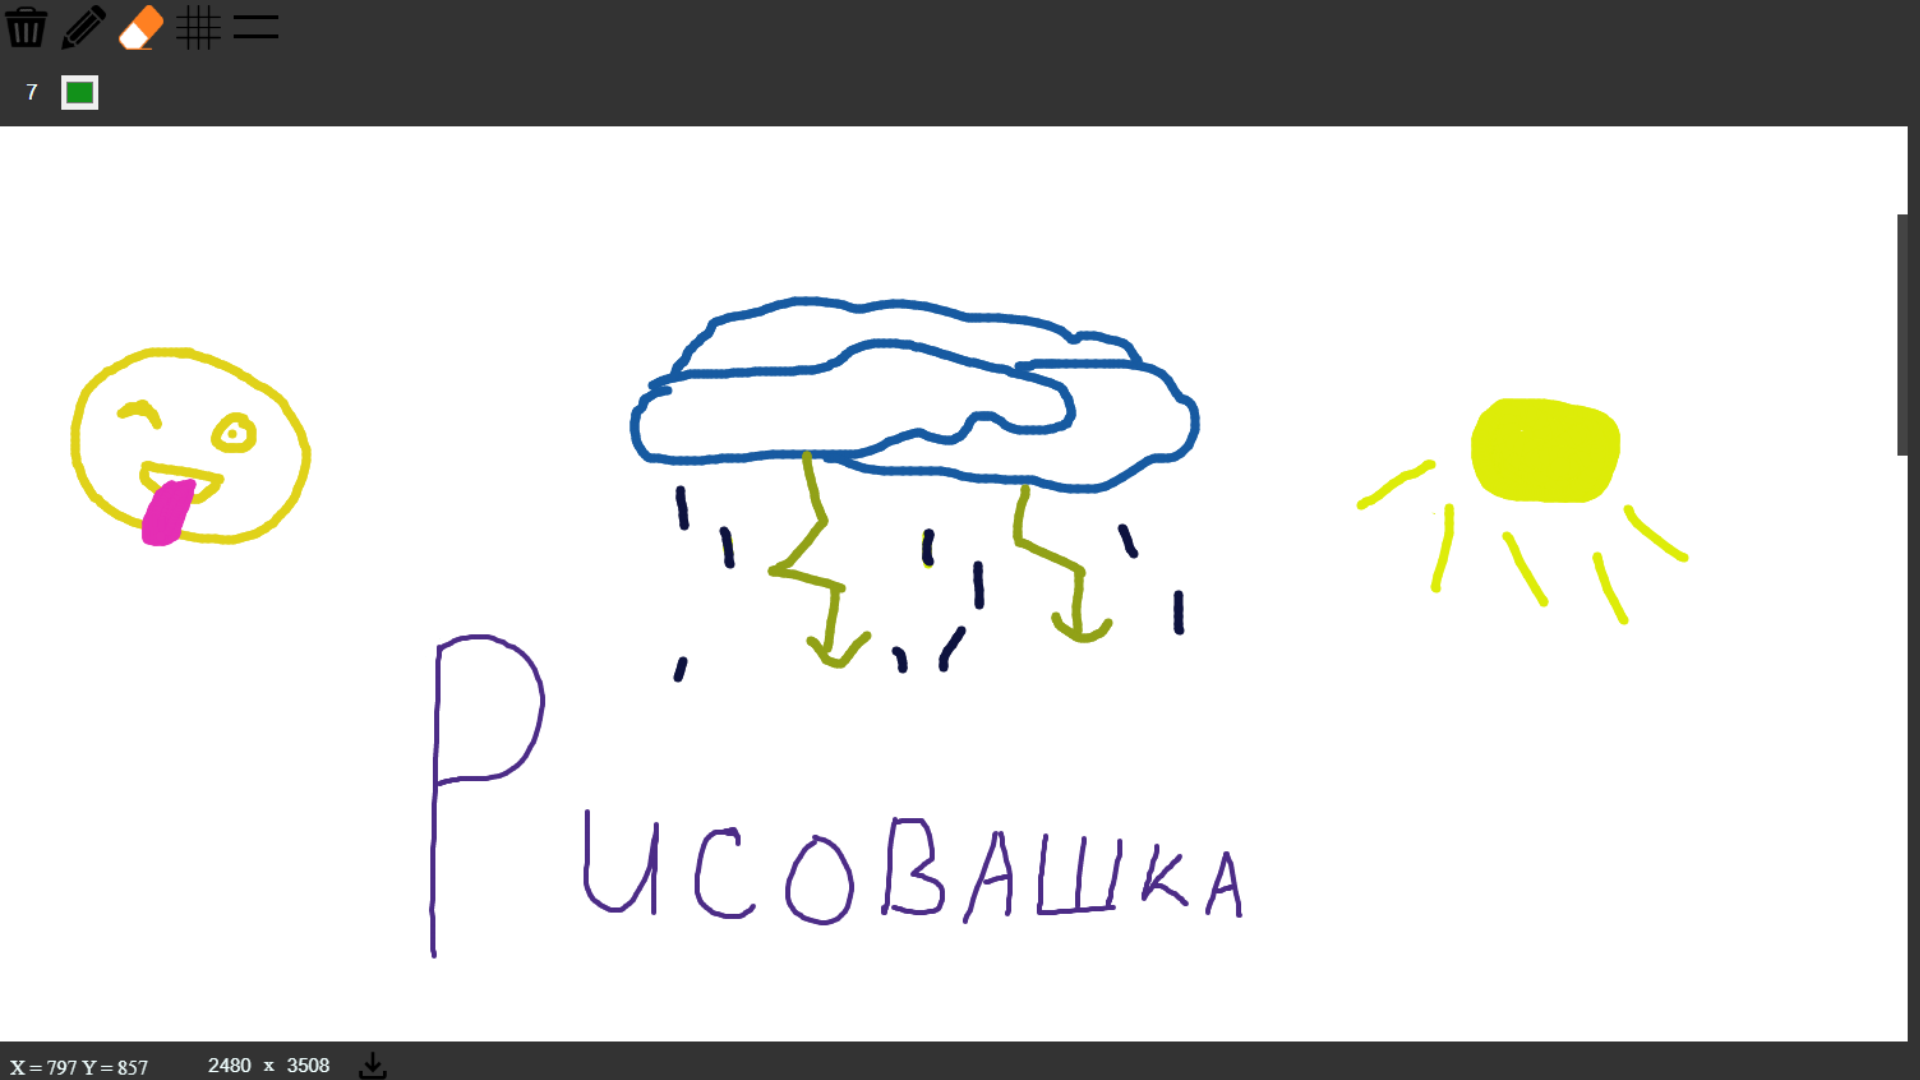 7
Рисовашка
X = 797 Y = 857 2480 x 3508